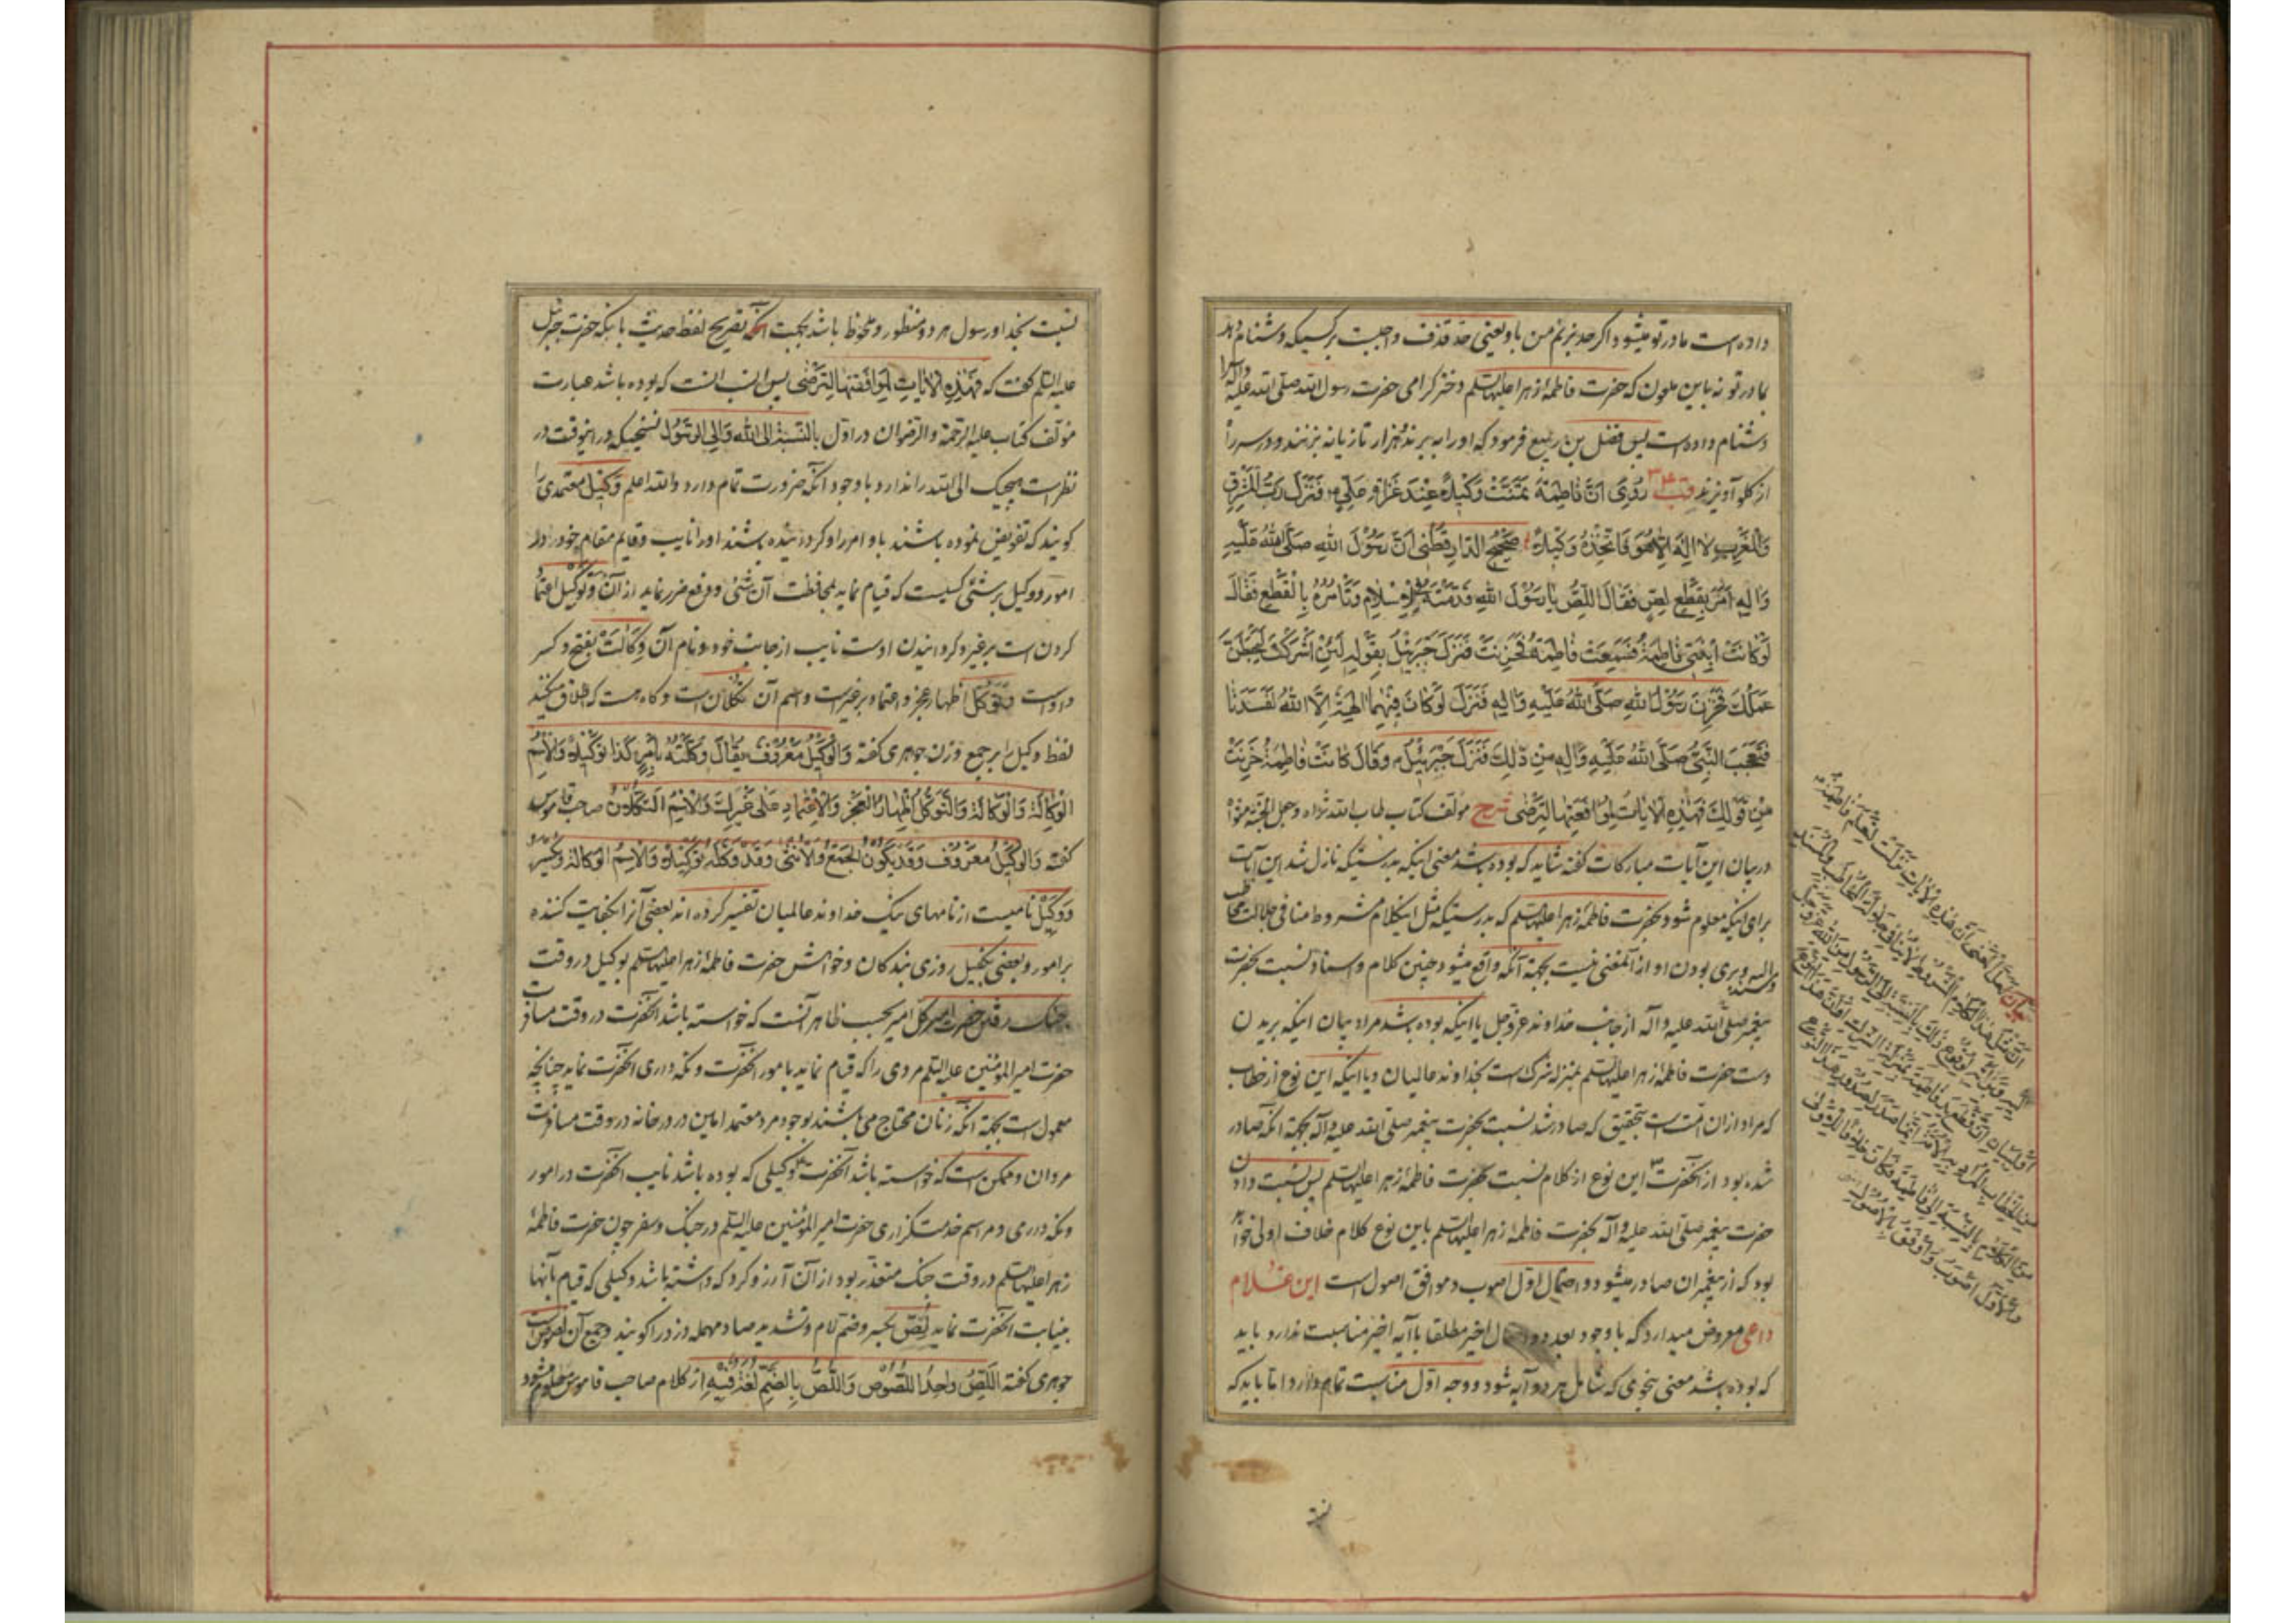 داده است مادر تو میشود اکر حد بزنم من باو یعنی حد قذف واجبست بر کسیکه دشنام دهد
بمادر تو نه باین ملعون که حضرت فاطمهٔ زهرا علیها السلم دختر کرامی حضرت رسول الله صلی الله علیه وآله را
دشنام داده است پس فضل بن ربیع فرمود که او را به برند و هزار تازیانه بزنند و سر را
از کلو آویزند قب روي ان فاطمة تمنت وكيلا عند غزاة علي فنزل رب المشرق
والمغرب لا اله الا هو فاتخذه وكيلا صحيح الدارقطني ان رسول الله صلى الله عليه
واله امر بقطع لص فقال اللص يا رسول الله قدمته في الاسلام وتأمره بالقطع فقال
لو كانت ابنتي فاطمة فسمعت فاطمة فحزنت فنزل جبرئيل بقوله لئن اشركت ليحبطن
عملك فحزن رسول الله صلى الله عليه واله فنزل لو كان فيهما الهة الا الله لفسدتا
فتعجب النبي صلى الله عليه واله من ذلك فنزل جبرئيل وقال كانت فاطمة حزنت
من قولك فهذه الايات لموافقتها لترضى شرح مؤلف کتاب طاب الله ثراه وجعل الجنة مثواه
در بیان این آیات مبارکات کفته شاید که بوده باشد معنی اینکه بدرستیکه نازل شد این آیات
برای اینکه معلوم شود بحضرت فاطمهٔ زهرا علیها السلم که بدرستیکه مثل اینکلام مشروط منافی جلالت مخاطب
والیه وبری بودن او از آنمعنی نیست بجهة آنکه واقع میشود چنین کلام واسناد نسبت بحضرت
پیغمبر صلی الله علیه وآله از جانب خداوند عزوجل یا اینکه بوده باشد مراد بیان اینکه بریدن
دست حضرت فاطمهٔ زهرا علیها السلم بمنزله شرک است بخداوند عالمیان ویا اینکه این نوع از خطاب
که مراد از ان امت است بتحقیق که صادر شد نسبت بحضرت پیغمبر صلی الله علیه وآله بجهة آنکه صادر
شده بود از آنحضرت این نوع از کلام نسبت بحضرت فاطمهٔ زهرا علیها السلم پس نسبت دادن
حضرت پیغمبر صلی الله علیه وآله بحضرت فاطمهٔ زهرا علیها السلم باین نوع کلام خلاف اولی خواهد
بود که از پیغمبران صادر میشود واحتمال اول اصوب وموافق اصول است این غلام
داعی معروض میدارد که با وجود بعد دو احتمال اخیر مطلقا باآیه اخیر مناسبت ندارد باید
که بوده باشد معنی بنحوی که شامل هر دو آیه شود ووجه اول مناسبت تمام دارد اما باید که
نسبت بخدا ورسول هر دو منظور وملحوظ باشد بجهت آنکه تصریح لفظ حدیث باینکه حضرت جبرئیل
علیه السلم کفت که فهذه الايات لموافقتها لترضى پس انسب انست که بوده باشد عبارت
مؤلف کتاب علیه الرحمة والرضوان در اول بالنسبة الى الله والى الرسول نسخهٔ که در اینوقت در
نظر است هیچیک الی الله را ندارد با وجود آنکه ضرورت تمام دارد والله اعلم وکیل معتمدی را
کویند که تفویض نموده باشند باو امر را وکردانیده باشند او را نایب وقایم مقام خود در
امور ووکیل بر شئی کسیست که قیام نماید بمحافظت آن شئی ودفع ضرر نماید از آن وتوکیل اعتماد
کردن است بر غیر وکردانیدن اوست نایب از جانب خود ونام آن وکالت بفتح وکسر
واو است وتوکل اظهار عجز واعتماد بر غیر است واسم آن تکلان است وکاه هست که اطلاق میکنند
لفظ وکیل را بر جمع وزن جوهری کفته والوكيل معروف يقال وكلته بامر كذا توكيلا والاسم
الوكالة والوكالة والتوكل اظهار العجز والاعتماد على غيرك والاسم التكلان صاحب قاموس
کفته والوكيل معروف وقد يكون للجمع والانثى وقد وكله توكيلا والاسم الوكالة ويكسر
ووکیل نامیست از نامهای نیک خداوند عالمیان تفسیر کرده اند بعضی آنرا بکفایت کننده
بر امور وبعضی بکفیل روزی بندکان وخواهش حضرت فاطمهٔ زهرا علیها السلم بوکیل در وقت
جنک رفتن حضرت امیر بحسب ظاهر آنست که خواسته باشد آنحضرت در وقت مسافرت
حضرت امیر المؤمنین علیه السلم مردی را که قیام نماید بامور آنحضرت ونکه داری آنحضرت نماید چنانچه
معمول است بجهة آنکه زنان محتاج می باشند بوجود مرد معتمد امین در در خانه در وقت مسافرت
مردان وممکن است که خواسته باشد آنحضرت وکیلی که بوده باشد نایب آنحضرت در امور
ونکه داری ومراسم خدمتکزاری حضرت امیر المؤمنین علیه السلم در جنک وسفر چون حضرت فاطمهٔ
زهرا علیها السلم در وقت جنک متعذر بود از آن آرزو کرد که داشته باشد وکیلی که قیام بآنها
بنیابت آنحضرت نماید لص بکسر وضم لام وتشدید صاد مهمله دزد را کویند وجمع آن لصوص است
جوهری کفته اللص واحد اللصوص واللص بالضم لغة فيه از کلام صاحب قاموس معلوم میشود